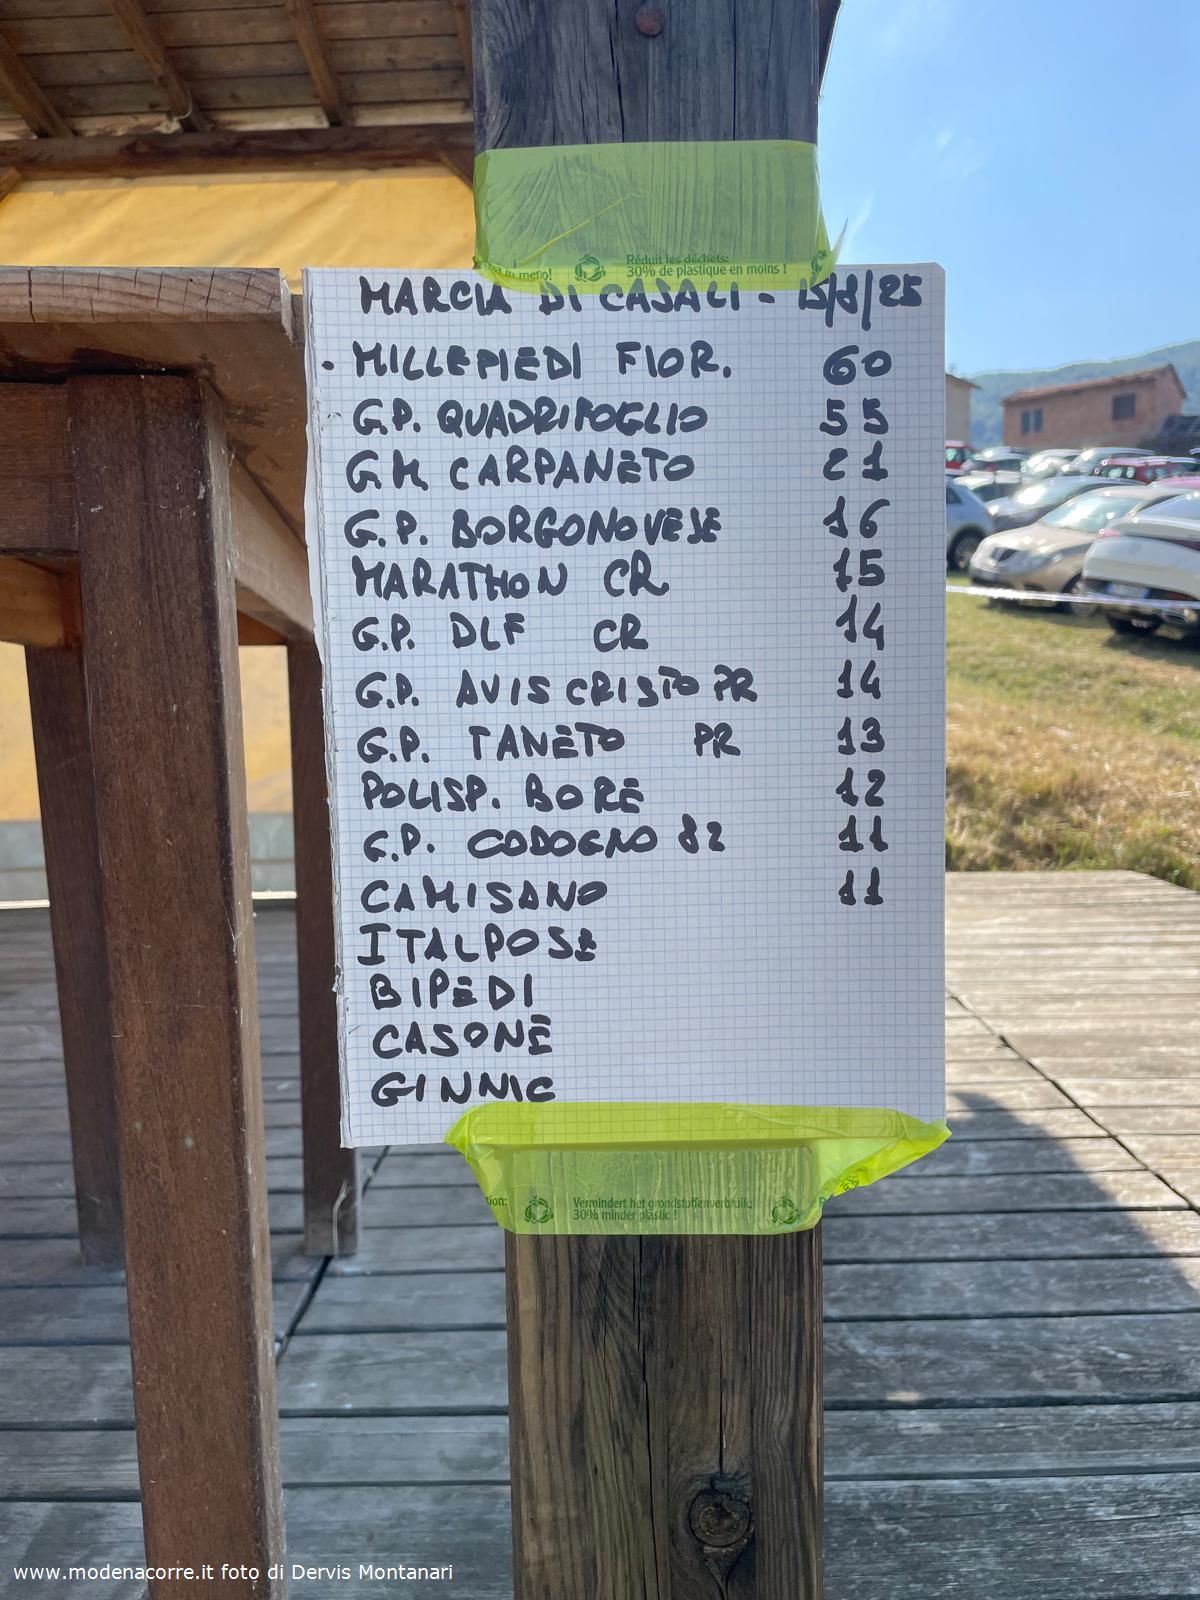 Réduit les déchets:
in meno!
30% de plastique en moins !
MARCIA DI CASALI - 15/8/25
. MILLEPIEDI FIOR. 60
G.P. QUADRIFOGLIO 55
G.M. CARPANETO 21
G.P. BORGONOVESE 16
MARATHON CR 15
G.P. DLF CR 14
G.P. AVIS CRISTO PR 14
G.P. TANETO PR 13
POLISP. BORE 12
G.P. CODOGNO 82 11
CAMISANO 11
ITALPOSE
BIPEDI
CASONE
GINNIC
tion:
Vermindert het grondstoffenverbruik:
30% minder plastic !
www.modenacorre.it foto di Dervis Montanari